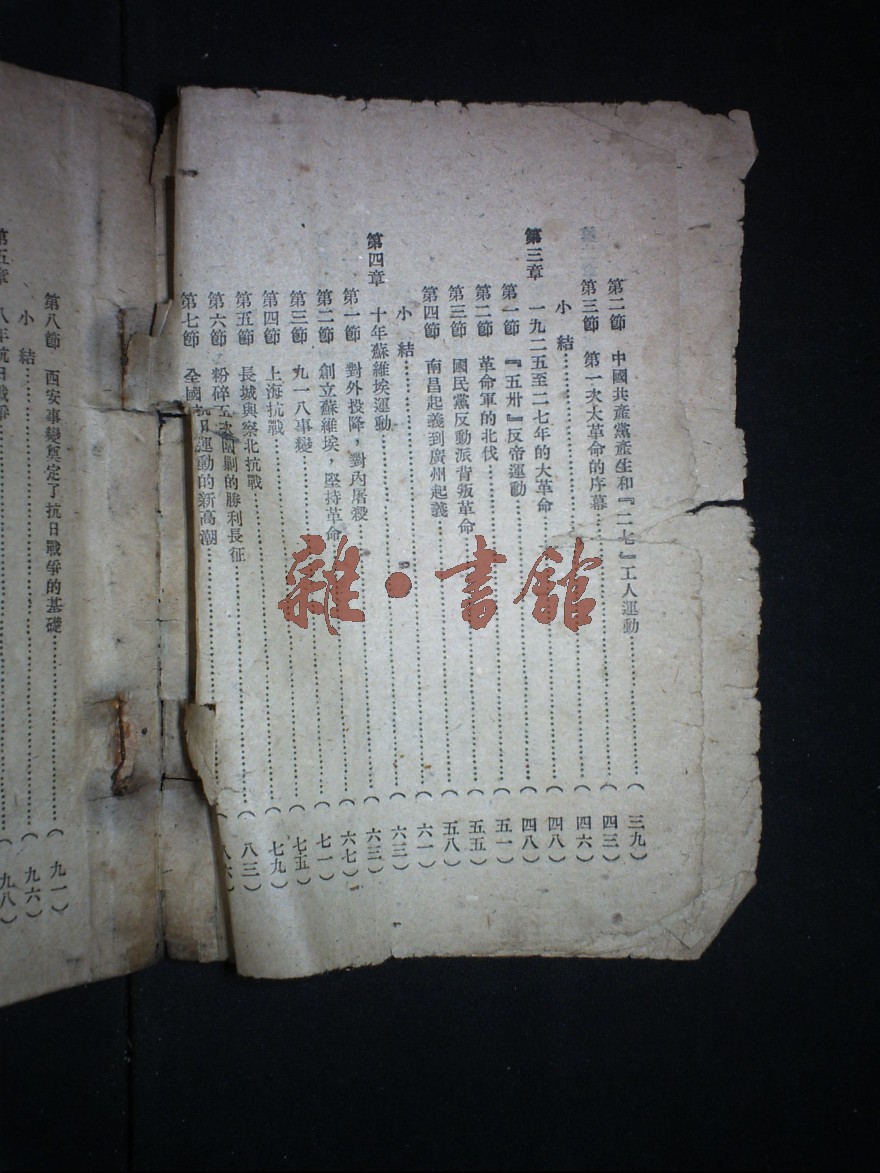 第二節　中國共產黨產生和『二七』工人運動……（三九）
第三節　第一次大革命的序幕……（四三）
小　結……（四六）
第三章　一九二五至二七年的大革命……（四八）
第一節　『五卅』反帝運動……（四八）
第二節　革命軍的北伐……（五一）
第三節　國民黨反動派背叛革命……（五五）
第四節　南昌起義到廣州起義……（五八）
小　結……（六一）
第四章　十年蘇維埃運動……（六三）
第一節　對外投降，對內屠殺……（六三）
第二節　創立蘇維埃，堅持革命……（六七）
第三節　九一八事變……（七一）
第四節　上海抗戰……（七五）
第五節　長城與察北抗戰……（七九）
第六節　粉碎五次圍剿的勝利長征……（八三）
第七節　全國抗日運動的新高潮……（八六）
第八節　西安事變奠定了抗日戰爭的基礎……（九一）
小　結……（九六）
第五章　八年抗日戰爭……（九八）
雜·書館